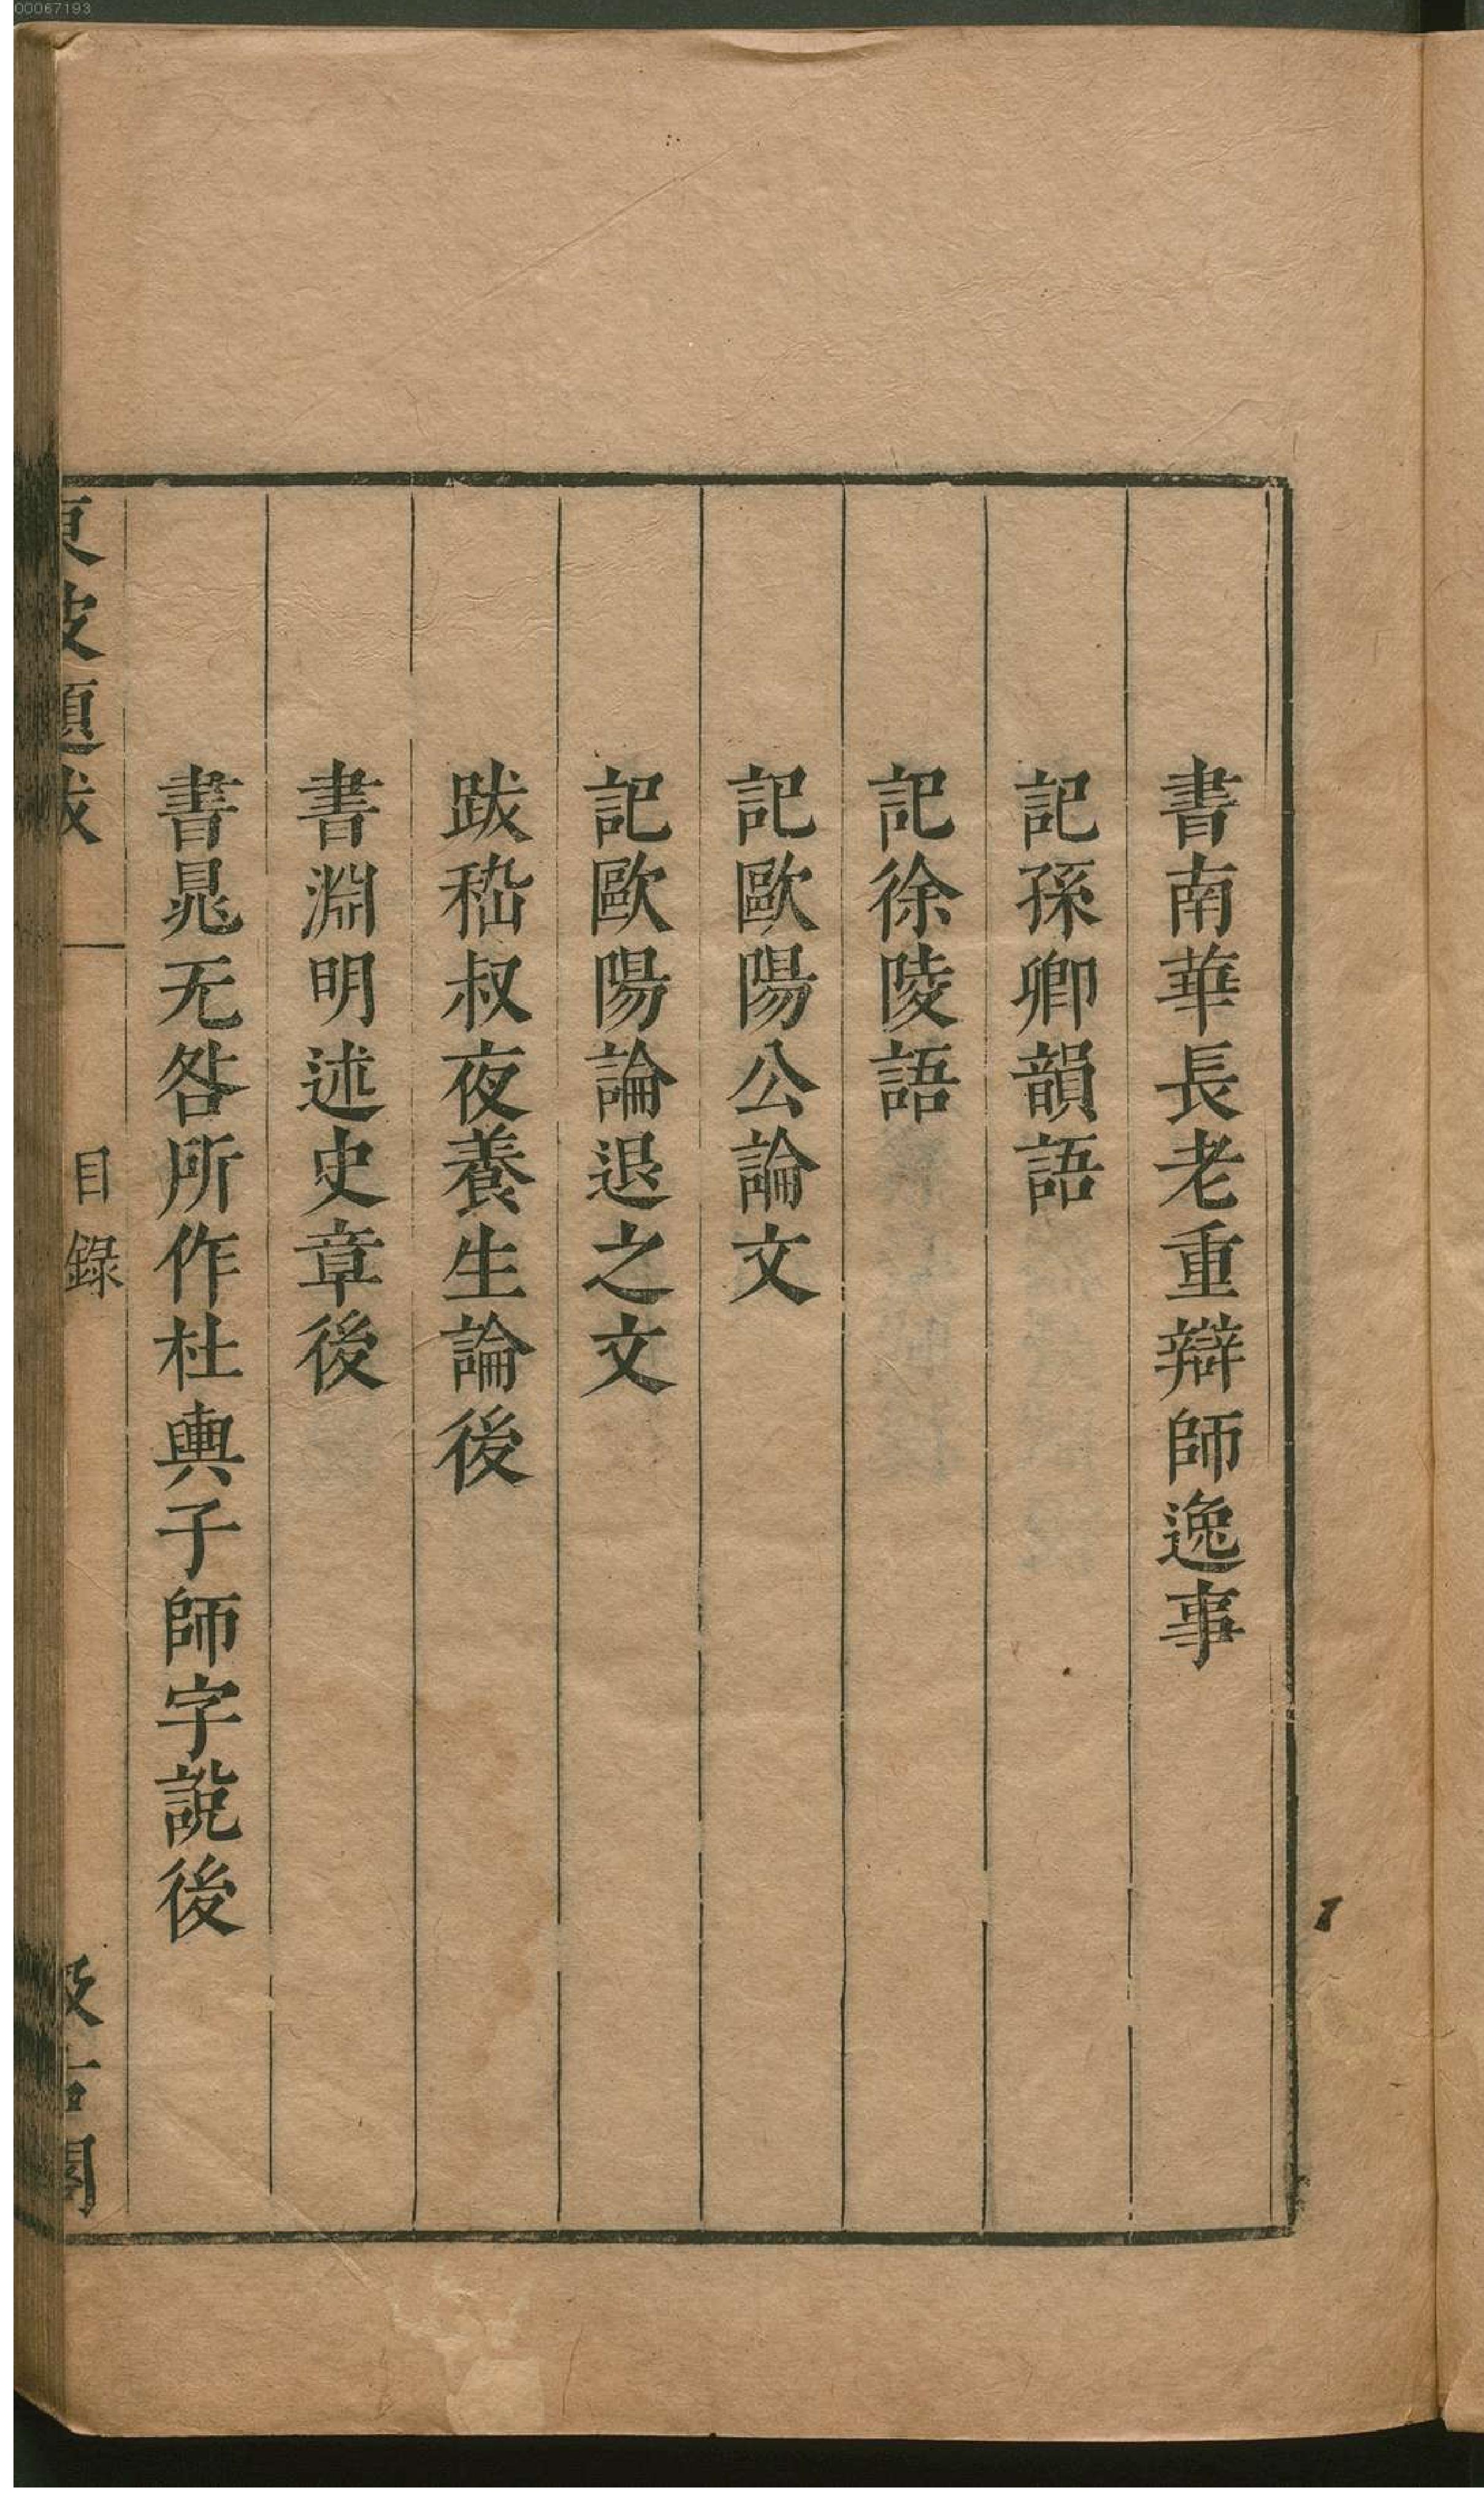 書南華長老重辯師逸事
記孫卿韻語
記徐陵語
記歐陽公論文
記歐陽論退之文
跋嵇叔夜養生論後
書淵明述史章後
書晁无咎所作杜輿子師字說後
東坡題跋
目錄
汲古閣
00067193